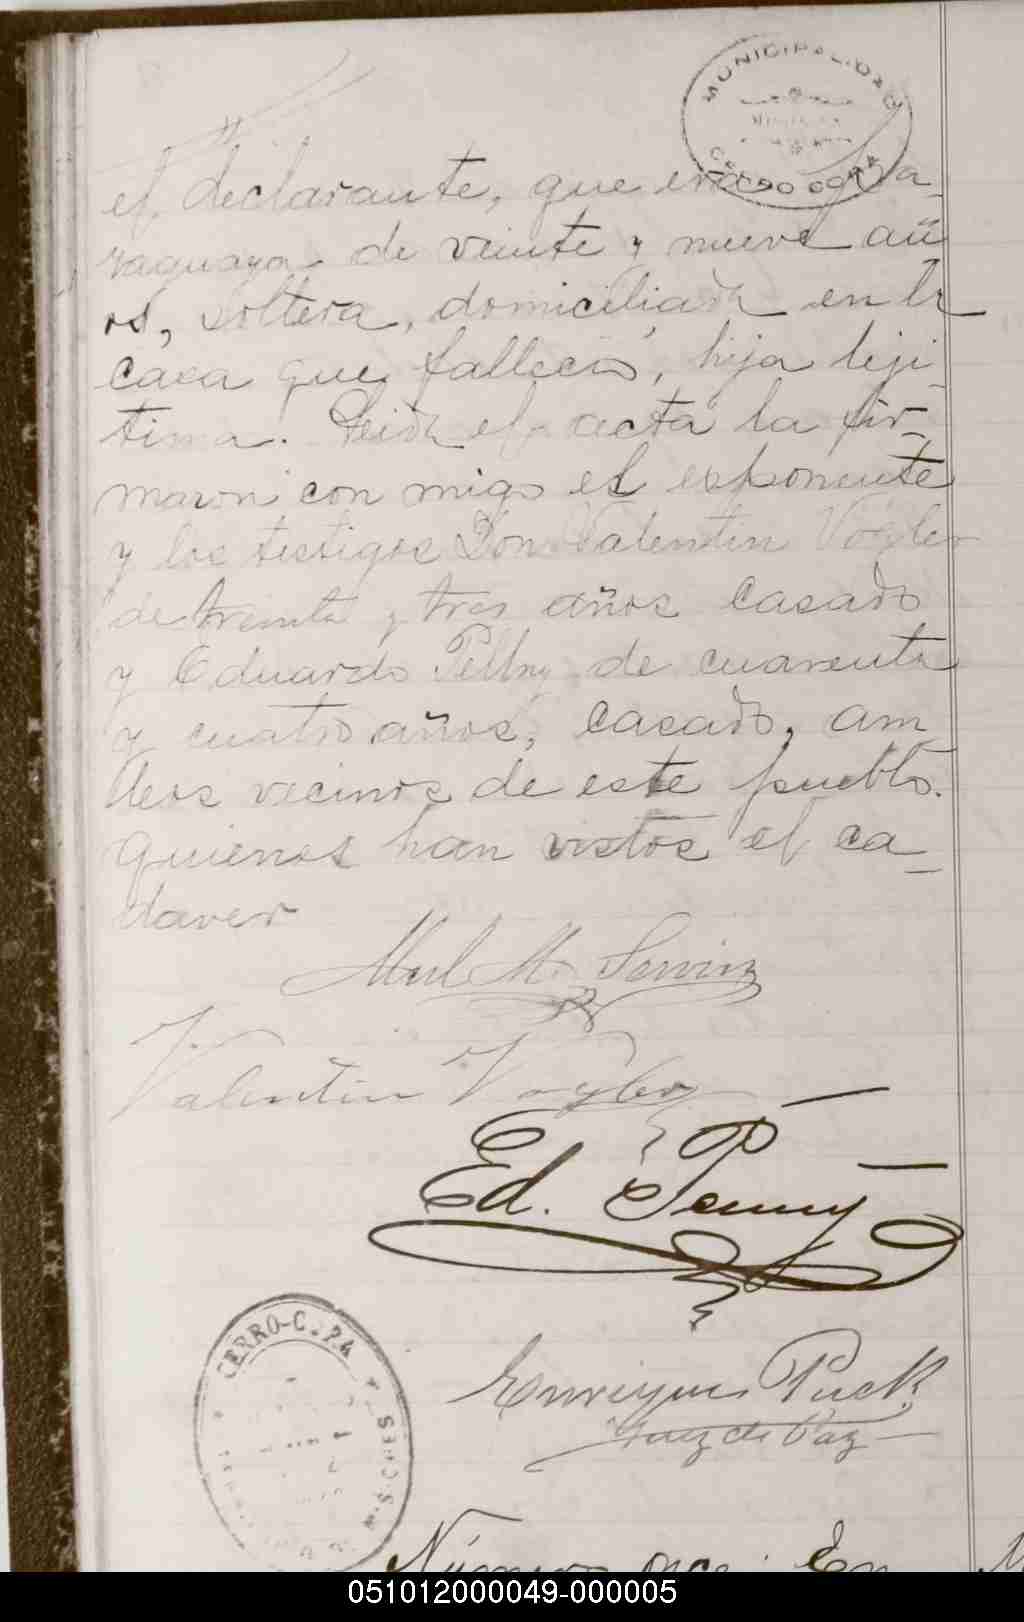 MUNICIPALIDAD
CERRO CORA
el declarante, que era Pa-
raguaya de veinte y nueve añ
os, soltera, domiciliada en la
casa que falleció, hija leji-
tima. Leida el acta la fir-
maron con migo el esponente
y los testigos Don Valentin Vogler
de treinta y tres años casado
y Eduardo de cuarenta
y cuatro años, casado, am
bos vecinos de este pueblo.
quienes han vistos el ca-
daver
Abel M. Servin
Valentin Vogler
Ed. Penny
Enrique Puck
Juez de Paz
CERRO-CORA
MISIONES
Número once. En
051012000049-000005